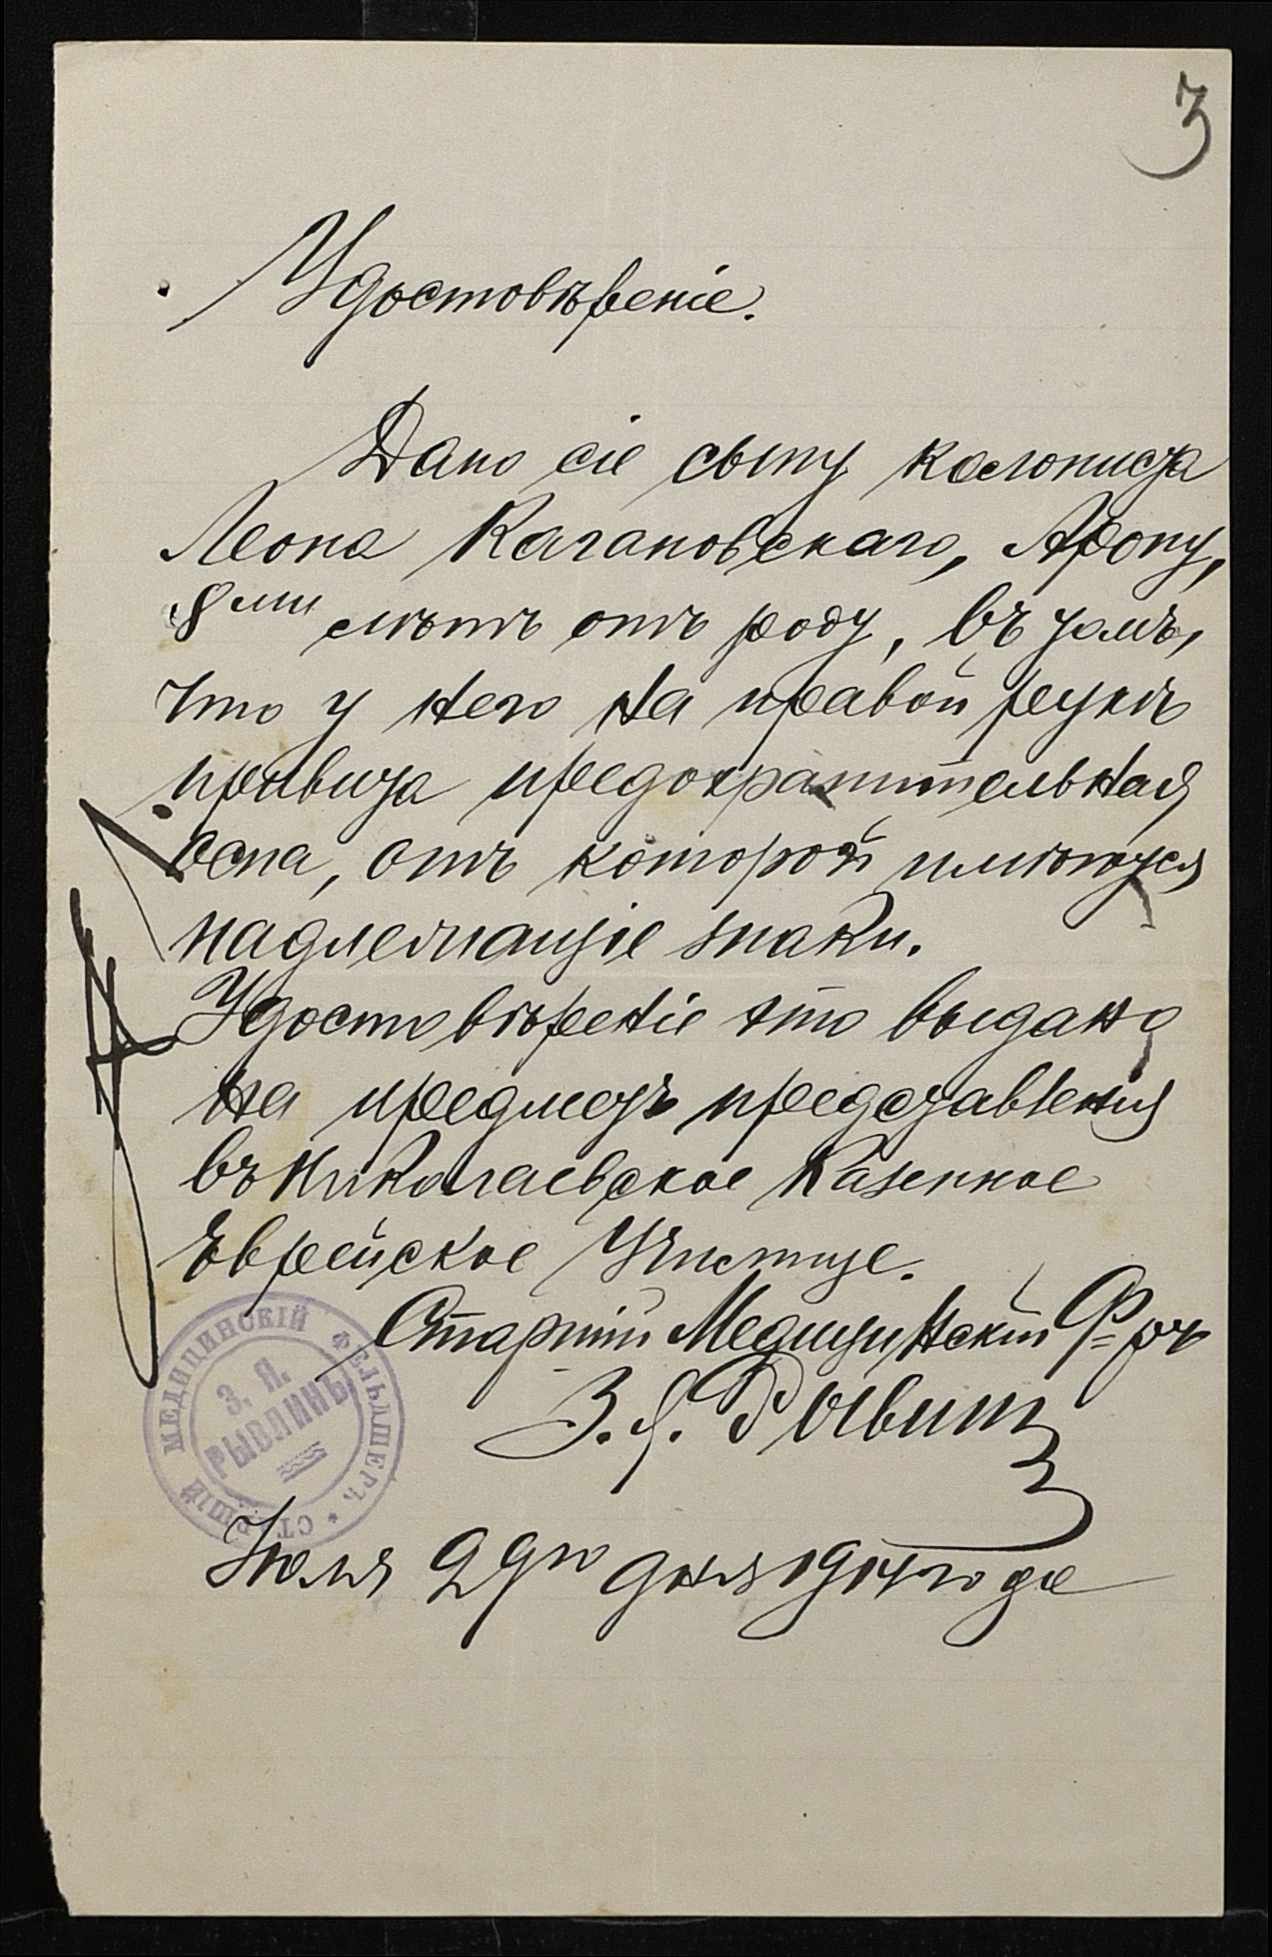 3
Удостовѣреніе.
Дано сіе сыну колониста
Леона Кагановскаго, Арону,
8ми лѣтъ отъ роду, въ томъ,
что у него на правой рукѣ
привита предохранительная
оспа, отъ которой имѣются
надлежащіе знаки.
Удостовѣреніе это выдано
на предметъ представленія
въ Николаевское Казенное
Еврейское Училище.
Старшій Медицинскій Ф-ръ
З. Я. Рывлинъ
СТАРШІЙ МЕДИЦИНСКІЙ ФЕЛЬДШЕРЪ *
З. Я.
РЫВЛИНЪ
Іюля 29го дня 1914 года